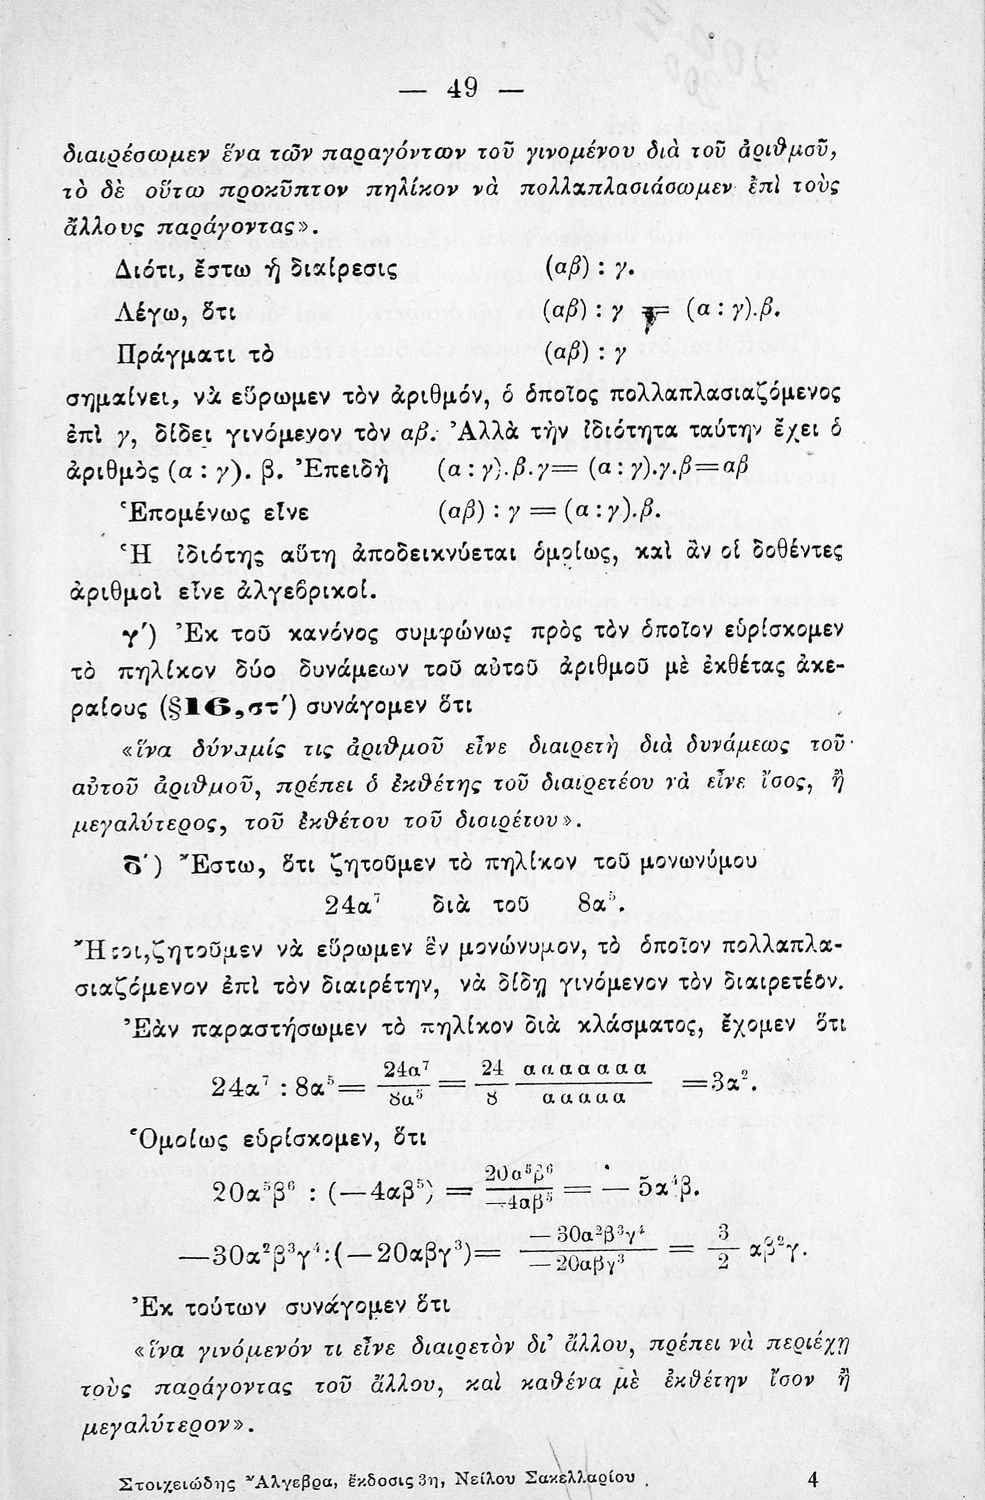 — 49 —
διαιρέσωμεν ἕνα τῶν παραγόντων τοῦ γινομένου διὰ τοῦ ἀριθμοῦ,
τὸ δὲ οὕτω προκῦπτον πηλίκον νὰ πολλαπλασιάσωμεν ἐπὶ τοὺς
ἄλλους παράγοντας».
Διότι, ἔστω ἡ διαίρεσις (αβ) : γ.
Λέγω, ὅτι (αβ) : γ = (α : γ).β.
Πράγματι τὸ (αβ) : γ
σημαίνει, νὰ εὕρωμεν τὸν ἀριθμόν, ὁ ὁποῖος πολλαπλασιαζόμενος
ἐπὶ γ, δίδει γινόμενον τὸν αβ. Ἀλλὰ τὴν ἰδιότητα ταύτην ἔχει ὁ
ἀριθμὸς (α : γ). β. Ἐπειδὴ (α : γ).β.γ= (α : γ).γ.β=αβ
Ἑπομένως εἶνε (αβ) : γ = (α :γ).β.
Ἡ ἰδιότης αὕτη ἀποδεικνύεται ὁμοίως, καὶ ἂν οἱ δοθέντες
ἀριθμοὶ εἶνε ἀλγεβρικοί.
γ΄) Ἐκ τοῦ κανόνος συμφώνως πρὸς τὸν ὁποῖον εὑρίσκομεν
τὸ πηλίκον δύο δυνάμεων τοῦ αὐτοῦ ἀριθμοῦ μὲ ἐκθέτας ἀκε-
ραίους (§16,στ΄) συνάγομεν ὅτι
«ἵνα δύναμίς τις ἀριθμοῦ εἶνε διαιρετὴ διὰ δυνάμεως τοῦ
αὐτοῦ ἀριθμοῦ, πρέπει ὁ ἐκθέτης τοῦ διαιρετέου νὰ εἶνε ἴσος, ἢ
μεγαλύτερος, τοῦ ἐκθέτου τοῦ διαιρέτου».
δ΄) Ἔστω, ὅτι ζητοῦμεν τὸ πηλίκον τοῦ μονωνύμου
24α⁷ διὰ τοῦ 8α⁵.
Ἤτοι,ζητοῦμεν νὰ εὕρωμεν ἓν μονώνυμον, τὸ ὁποῖον πολλαπλα-
σιαζόμενον ἐπὶ τὸν διαιρέτην, νὰ δίδῃ γινόμενον τὸν διαιρετέον.
Ἐὰν παραστήσωμεν τὸ πηλίκον διὰ κλάσματος, ἔχομεν ὅτι
24α⁷ : 8α⁵= 24α⁷/8α⁵ = 24/8 ααααααα/ααααα =3α².
Ὁμοίως εὑρίσκομεν, ὅτι
20α⁵β⁶ : (—4αβ⁵) = 20α⁵β⁶/—4αβ⁵ = — 5α⁴β.
—30α²β³γ⁴:(—20αβγ³)= —30α²β³γ⁴/—20αβγ³ = 3/2 αβ²γ.
Ἐκ τούτων συνάγομεν ὅτι
«ἵνα γινόμενόν τι εἶνε διαιρετὸν δι' ἄλλου, πρέπει νὰ περιέχῃ
τοὺς παράγοντας τοῦ ἄλλου, καὶ καθένα μὲ ἐκθέτην ἴσον ἢ
μεγαλύτερον».
Στοιχειώδης Ἄλγεβρα, ἔκδοσις 3η, Νείλου Σακελλαρίου 4